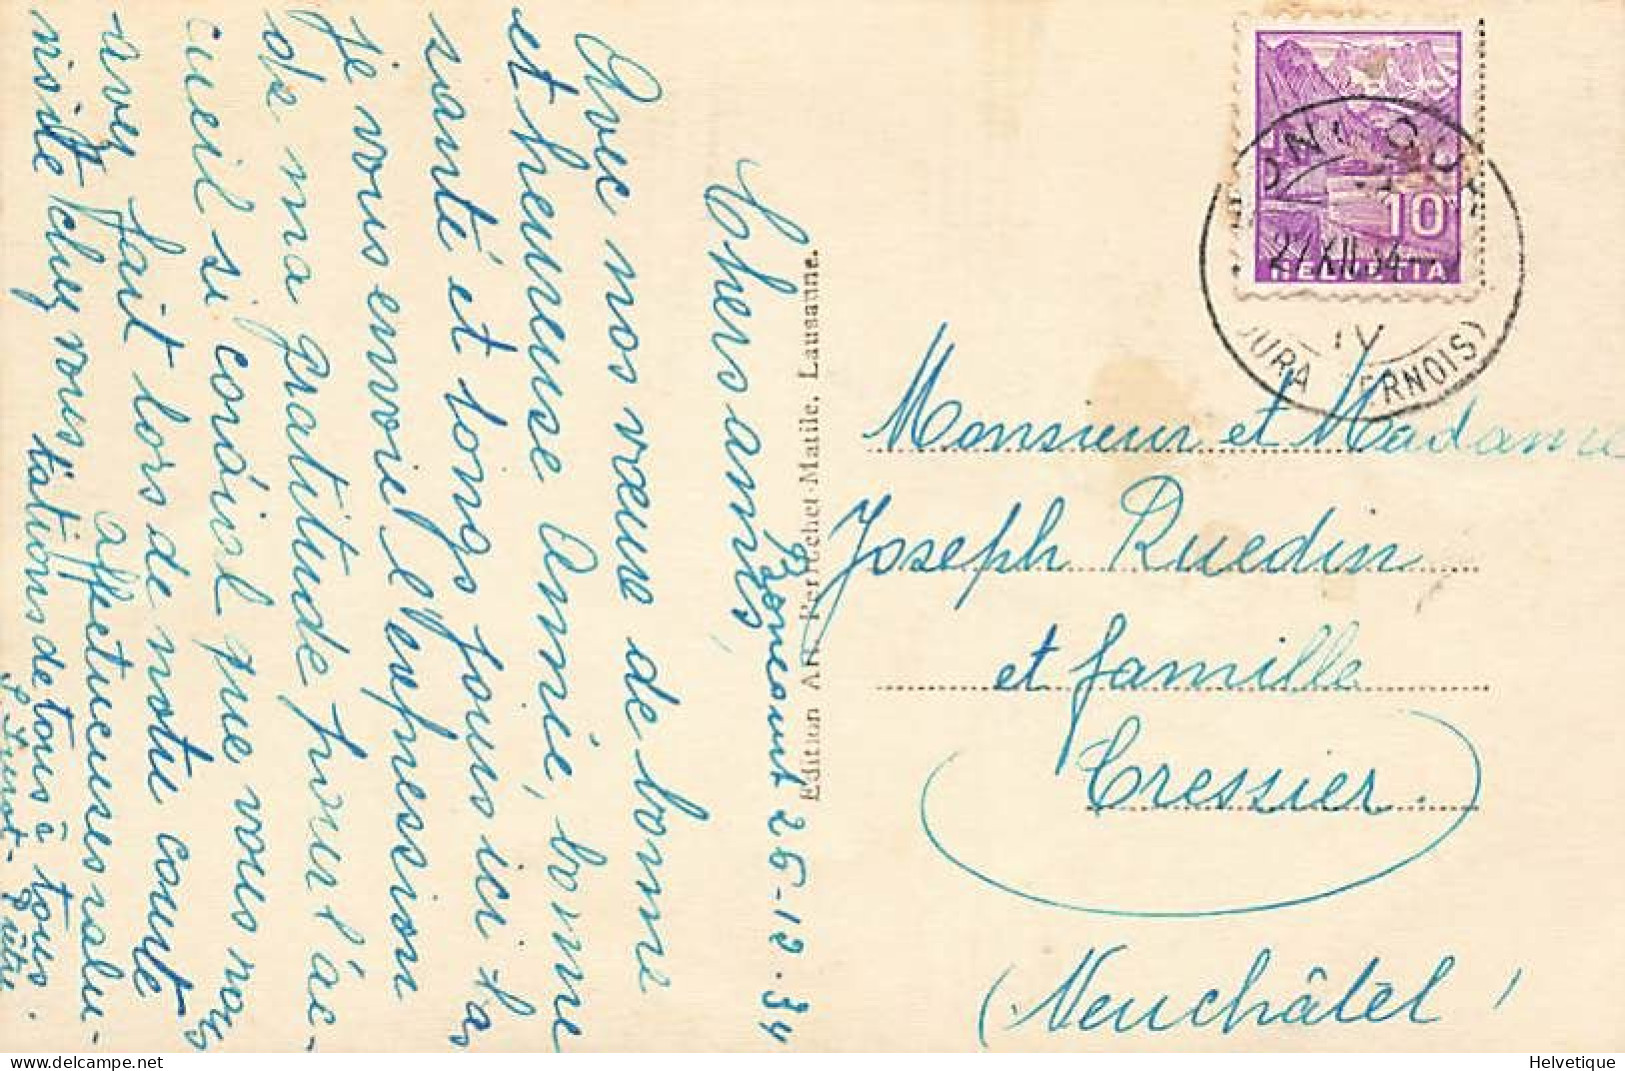 Boncourt 26-12.34
Chers amis,
Avec nos vœux de bonne
et heureuse Année, bonne
santé et longs jours ici-bas
je vous envoie l'expression
de ma gratitude pour l'ac-
cueil si cordial que vous nous
avez fait lors de notre courte
visite chez vous.
affectueuses salu-
tations de tous à tous.
Edition Art. Perrochet-Matile, Lausanne.
10
HELVETIA
27 XII 34
IV
(JURA BERNOIS)
Monsieur et Madame
Joseph Ruedin
et famille
Cressier
(Neuchâtel)
Helvetique